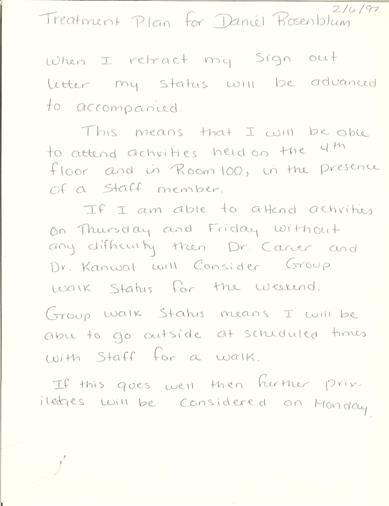 2/6/97
Treatment Plan for Daniel Rosenblum
When I retract my Sign out
letter my Status will be advanced
to accompanied.
This means that I will be able
to attend activities held on the 4th
floor and in Room 100, in the presence
of a Staff member.
If I am able to attend activities
on Thursday and Friday without
any difficulty then Dr Carver and
Dr. Kanwal will Consider Group
walk Status for the weekend.
Group walk Status means I will be
able to go outside at scheduled times
with Staff for a walk.
If this goes well then further priv-
iledges will be Considered on Monday.